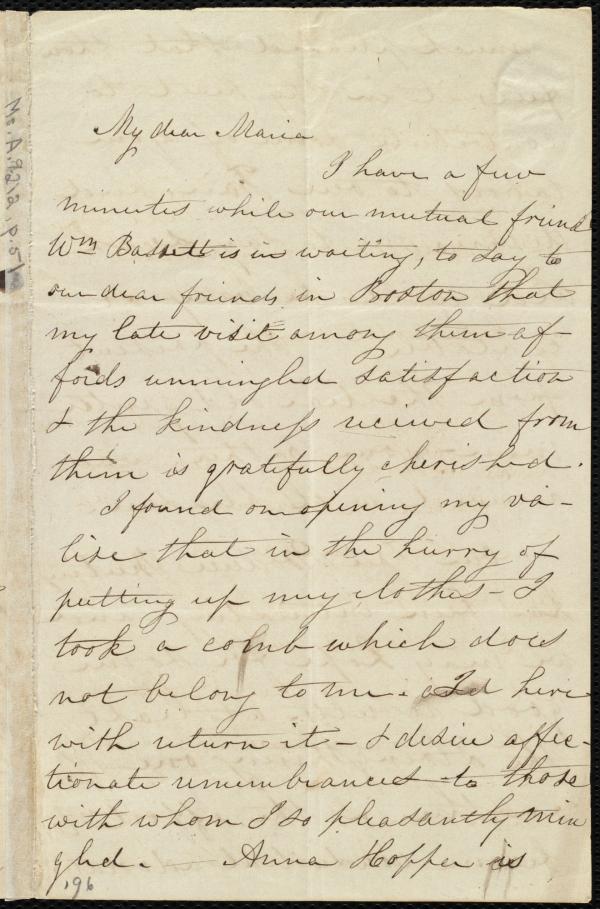 My dear Maria
I have a few
minutes while our mutual friend
Wm Bassett is in waiting, to say to
our dear friends in Boston that
my late visit among them af-
fords unmingled satisfaction
& the kindness received from
them is gratefully cherished.
I found on opening my va-
lise that in the hurry of
putting up my clothes - I
took a comb which does
not belong to me. I here
with return it - & desire affec-
tionate remembrances to those
with whom I so pleasantly min
gled. - Anna Hopper is
196
Ms. A.9.2 p.5